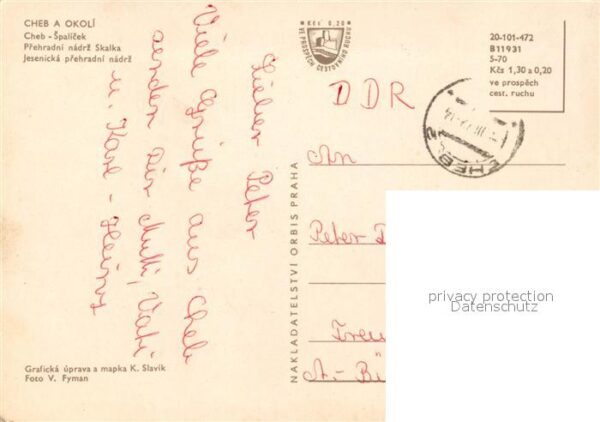 CHEB A OKOLÍ
Cheb - Špalíček
Přehradní nádrž Skalka
Jesenická přehradní nádrž
Kčs 0,20
VE PROSPĚCH CESTOVNÍHO RUCHU
20-101-472
B11931
5-70
Kčs 1,30 a 0,20
ve prospěch
cest. ruchu
CHEB 2
DDR
An
Peter
A.-
Lieber Peter
Viele Grüße aus Cheb
senden Dir Mutti, Vati
u. Karl-Heinz
NAKLADATELSTVÍ ORBIS PRAHA
privacy protection
Datenschutz
Grafická úprava a mapka K. Slavík
Foto V. Fyman